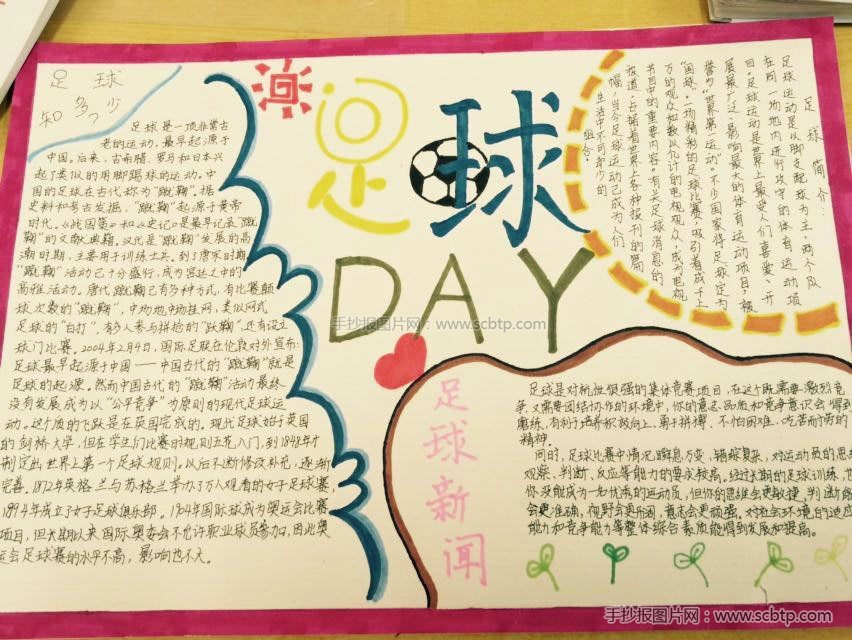 足球
知多少
足球是一项非常古
老的运动,最早起源于
中国,后来,古希腊、罗马和日本兴
起了类似的用脚踢球的运动。中
国的足球在古代称为“蹴鞠”。据
史料和考古发掘,“蹴鞠”起源于黄帝
时代。《战国策》和《史记》是最早记录“蹴
鞠”的文献典籍。汉代是“蹴鞠”发展的高
潮时期,主要用于训练士兵。到了唐宋时期,
“蹴鞠”活动已十分盛行,成为宫廷之中的
高雅活动。唐代蹴鞠已有多种方式,有比赛颠
球次数的“蹴鞠”,中场地中场挂网,类似网式
足球的“白打”,有多人参与拼抢的“跃鞠”,还有设立
球门比赛。2004年2月4日,国际足联在伦敦对外宣布:
足球最早起源于中国——中国古代的“蹴鞠”就是
足球的起源。然而中国古代的“蹴鞠”活动最终
没有发展成为以“公平竞争”为原则的现代足球运
动。这个质的飞跃是在英国完成的。现代足球始于英国
的剑桥大学,但在学生们比赛时规则五花八门,到1848年才
制定出世界上第一个足球规则。以后不断修改补充,逐渐
完善。1872年英格兰与苏格兰举办3万人观看的女子足球赛,
1894年成立了女子足球俱乐部。1904年国际球成为奥运会比赛
项目,但长期以来国际奥委会不允许职业球员参加,因此奥
运会足球赛的水平不高,影响也不大。
足球
DAY
足球简介:
足球运动是以脚支配球为主,两个队
在同一场地内进行攻守的体育运动项
目。足球运动是世界上最受人们喜爱、开
展最广泛、影响最大的体育运动项目,被
誉为“世界第一运动”。不少国家将足球定为
“国球”。一场精彩的足球比赛,吸引着成千上
万的观众和数以亿计的电视观众,成为电视
节目中的重要内容。有关足球消息的
报道,占据着世界上各种报刊的篇
幅,当今足球运动已成为人们
生活中不可却少的
组合。
足球新闻
足球是对抗性很强的集体竞赛项目,在这个既需要激烈竞
争,又需要团结协作的环境中,你的意志品质和竞争意识会得到
磨练,有利于培养积极向上、勇于拼搏、不怕困难、吃苦而劳的
精神。
同时,足球比赛中情况瞬息万变,错综复杂,对运动员的思
观察、判断、反应等能力的要求较高。经过长期的足球训练,也
你没能成为一名优秀的运动员,但你的思维会更敏捷,判断能
会更准确,视野会更开阔,意志会更顽强,对社会环境的适应
能力和竞争能力等整体综合素质能得到发展和提高。
手抄报图片网:www.scbtp.com
手抄报图片网:www.scbtp.com